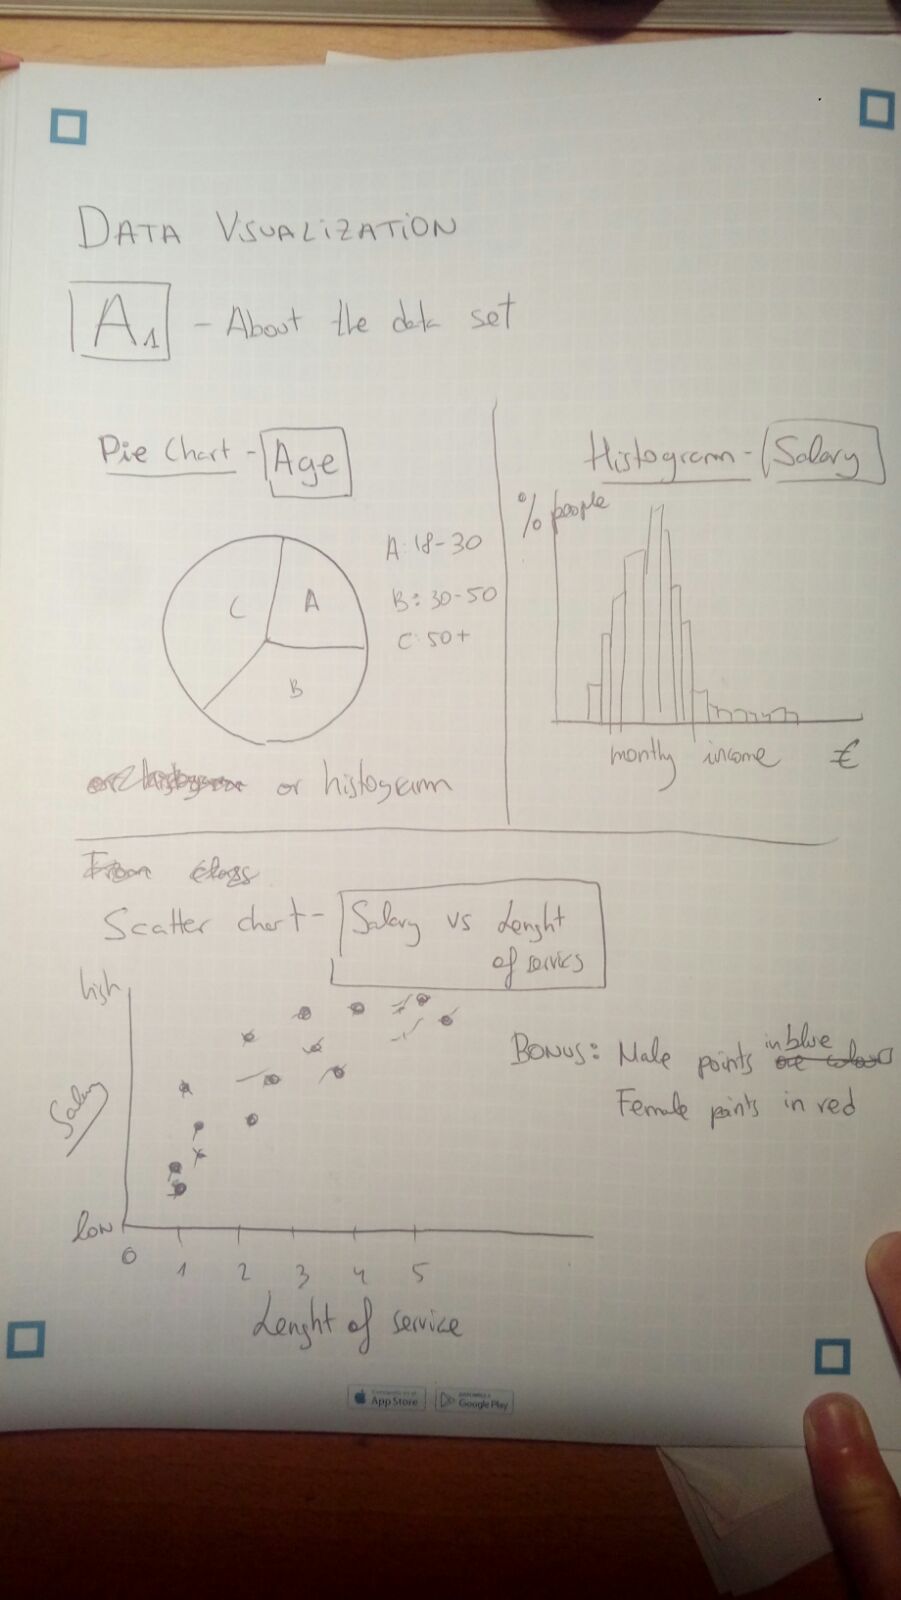 DATA VISUALIZATION
A1 - About the data set
Pie Chart - Age
A: 18-30
B: 30-50
C: 50+
C
A
B
or histogram
Histogram - Salary
% people
monthly income €
Scatter chart - Salary vs Lenght
of servics
high
Salary
low
0 1 2 3 4 5
Lenght of service
BONUS: Male points in blue
Female points in red
App Store
Google Play